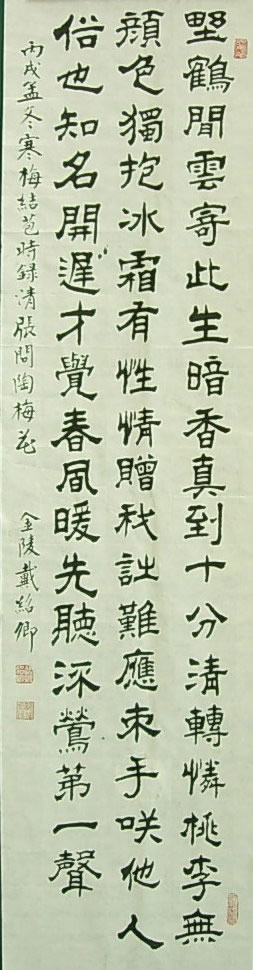 野鶴閒雲寄此生暗香真到十分清轉憐桃李無
顏色獨抱冰霜有性情贈我詩難應束手咲他人
俗也知名開遲才覺春風暖先聽流鶯第一聲
丙戌孟冬寒梅結苞時錄清張問陶梅花 金陵戴紹卿